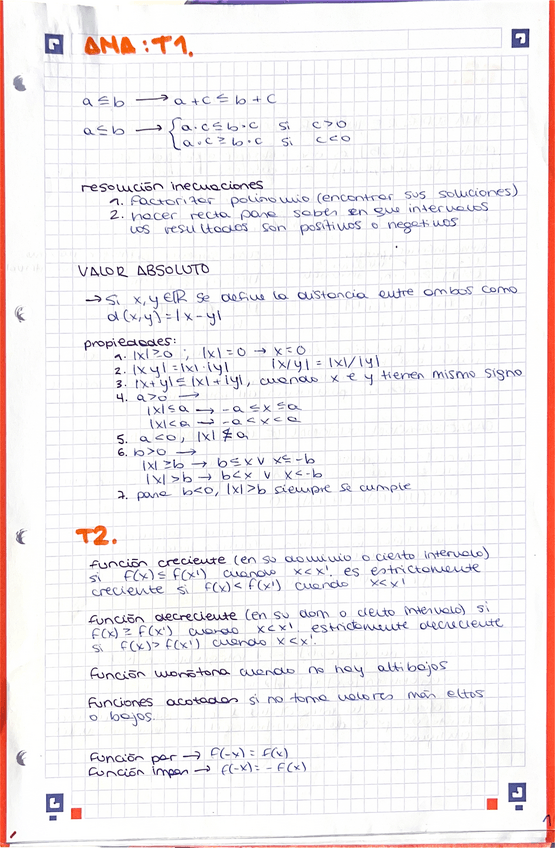 ANA: T1.
a ≤ b → a + c ≤ b + c
a ≤ b → { a · c ≤ b · c si c > 0
a · c ≥ b · c si c < 0
resolución inecuaciones
1. Factorizar polinomio (encontrar sus soluciones)
2. hacer recta para saber en que intervalos
los resultados son positivos o negativos
VALOR ABSOLUTO
→ Si x, y ∈ ℝ se define la distancia entre ambos como
d(x,y) = |x - y|
propiedades:
1. |x| ≥ 0 ; |x| = 0 → x = 0
2. |x y| = |x| · |y| |x/y| = |x|/|y|
3. |x+y| ≤ |x| + |y|, cuando x e y tienen mismo signo
4. a > 0 →
|x| ≤ a → -a ≤ x ≤ a
|x| < a → -a < x < a
5. a < 0, |x| ≰ a
6. b > 0 →
|x| ≥ b → b ≤ x ∨ x ≤ -b
|x| > b → b < x ∨ x < -b
7. para b < 0, |x| > b siempre se cumple
T2.
función creciente (en su dominio o cierto intervalo)
si f(x) ≤ f(x') cuando x < x'. es estrictamente
creciente si f(x) < f(x') cuando x < x'
función decreciente (en su dom o cierto intervalo) si
f(x) ≥ f(x') cuando x < x'. estrictamente decreciente
si f(x) > f(x') cuando x < x'.
función monótona cuando no hay altibajos
funciones acotadas si no toma valores más altos
o bajos.
función par → f(-x) = f(x)
función impar → f(-x) = - f(x)
1